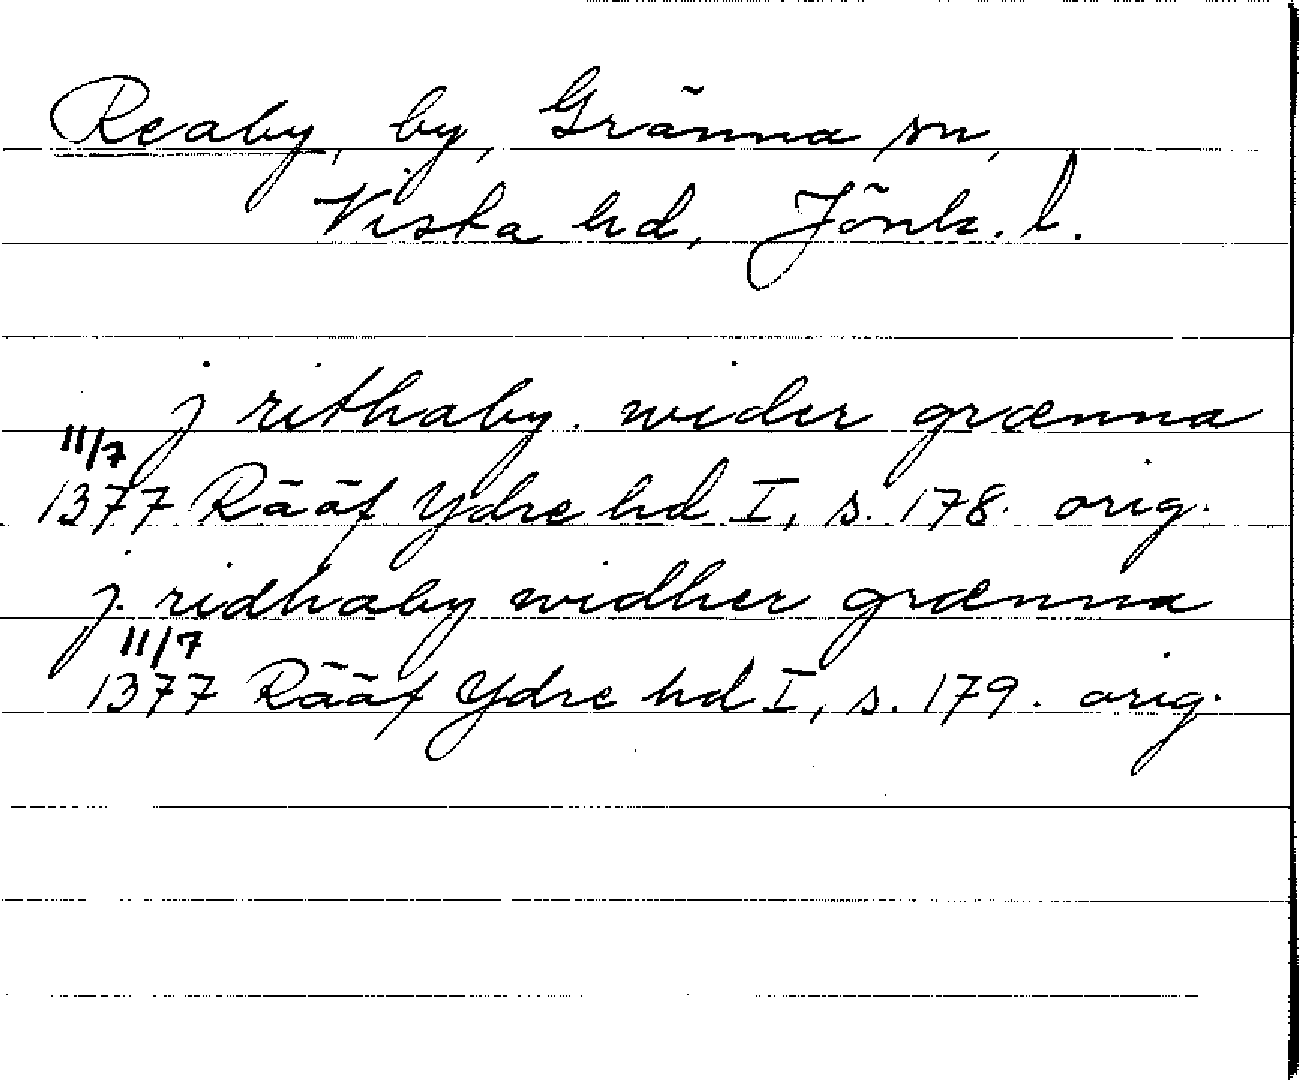 Reaby, by, Gränna sn,
Vista hd, Jönk. l.
j rithaby. wider grænna
11/7
1377 Rääf Ydre hd I, s. 178. orig.
j. ridhaby widher grænna
11/7
1377 Rääf Ydre hd I, s. 179. orig.